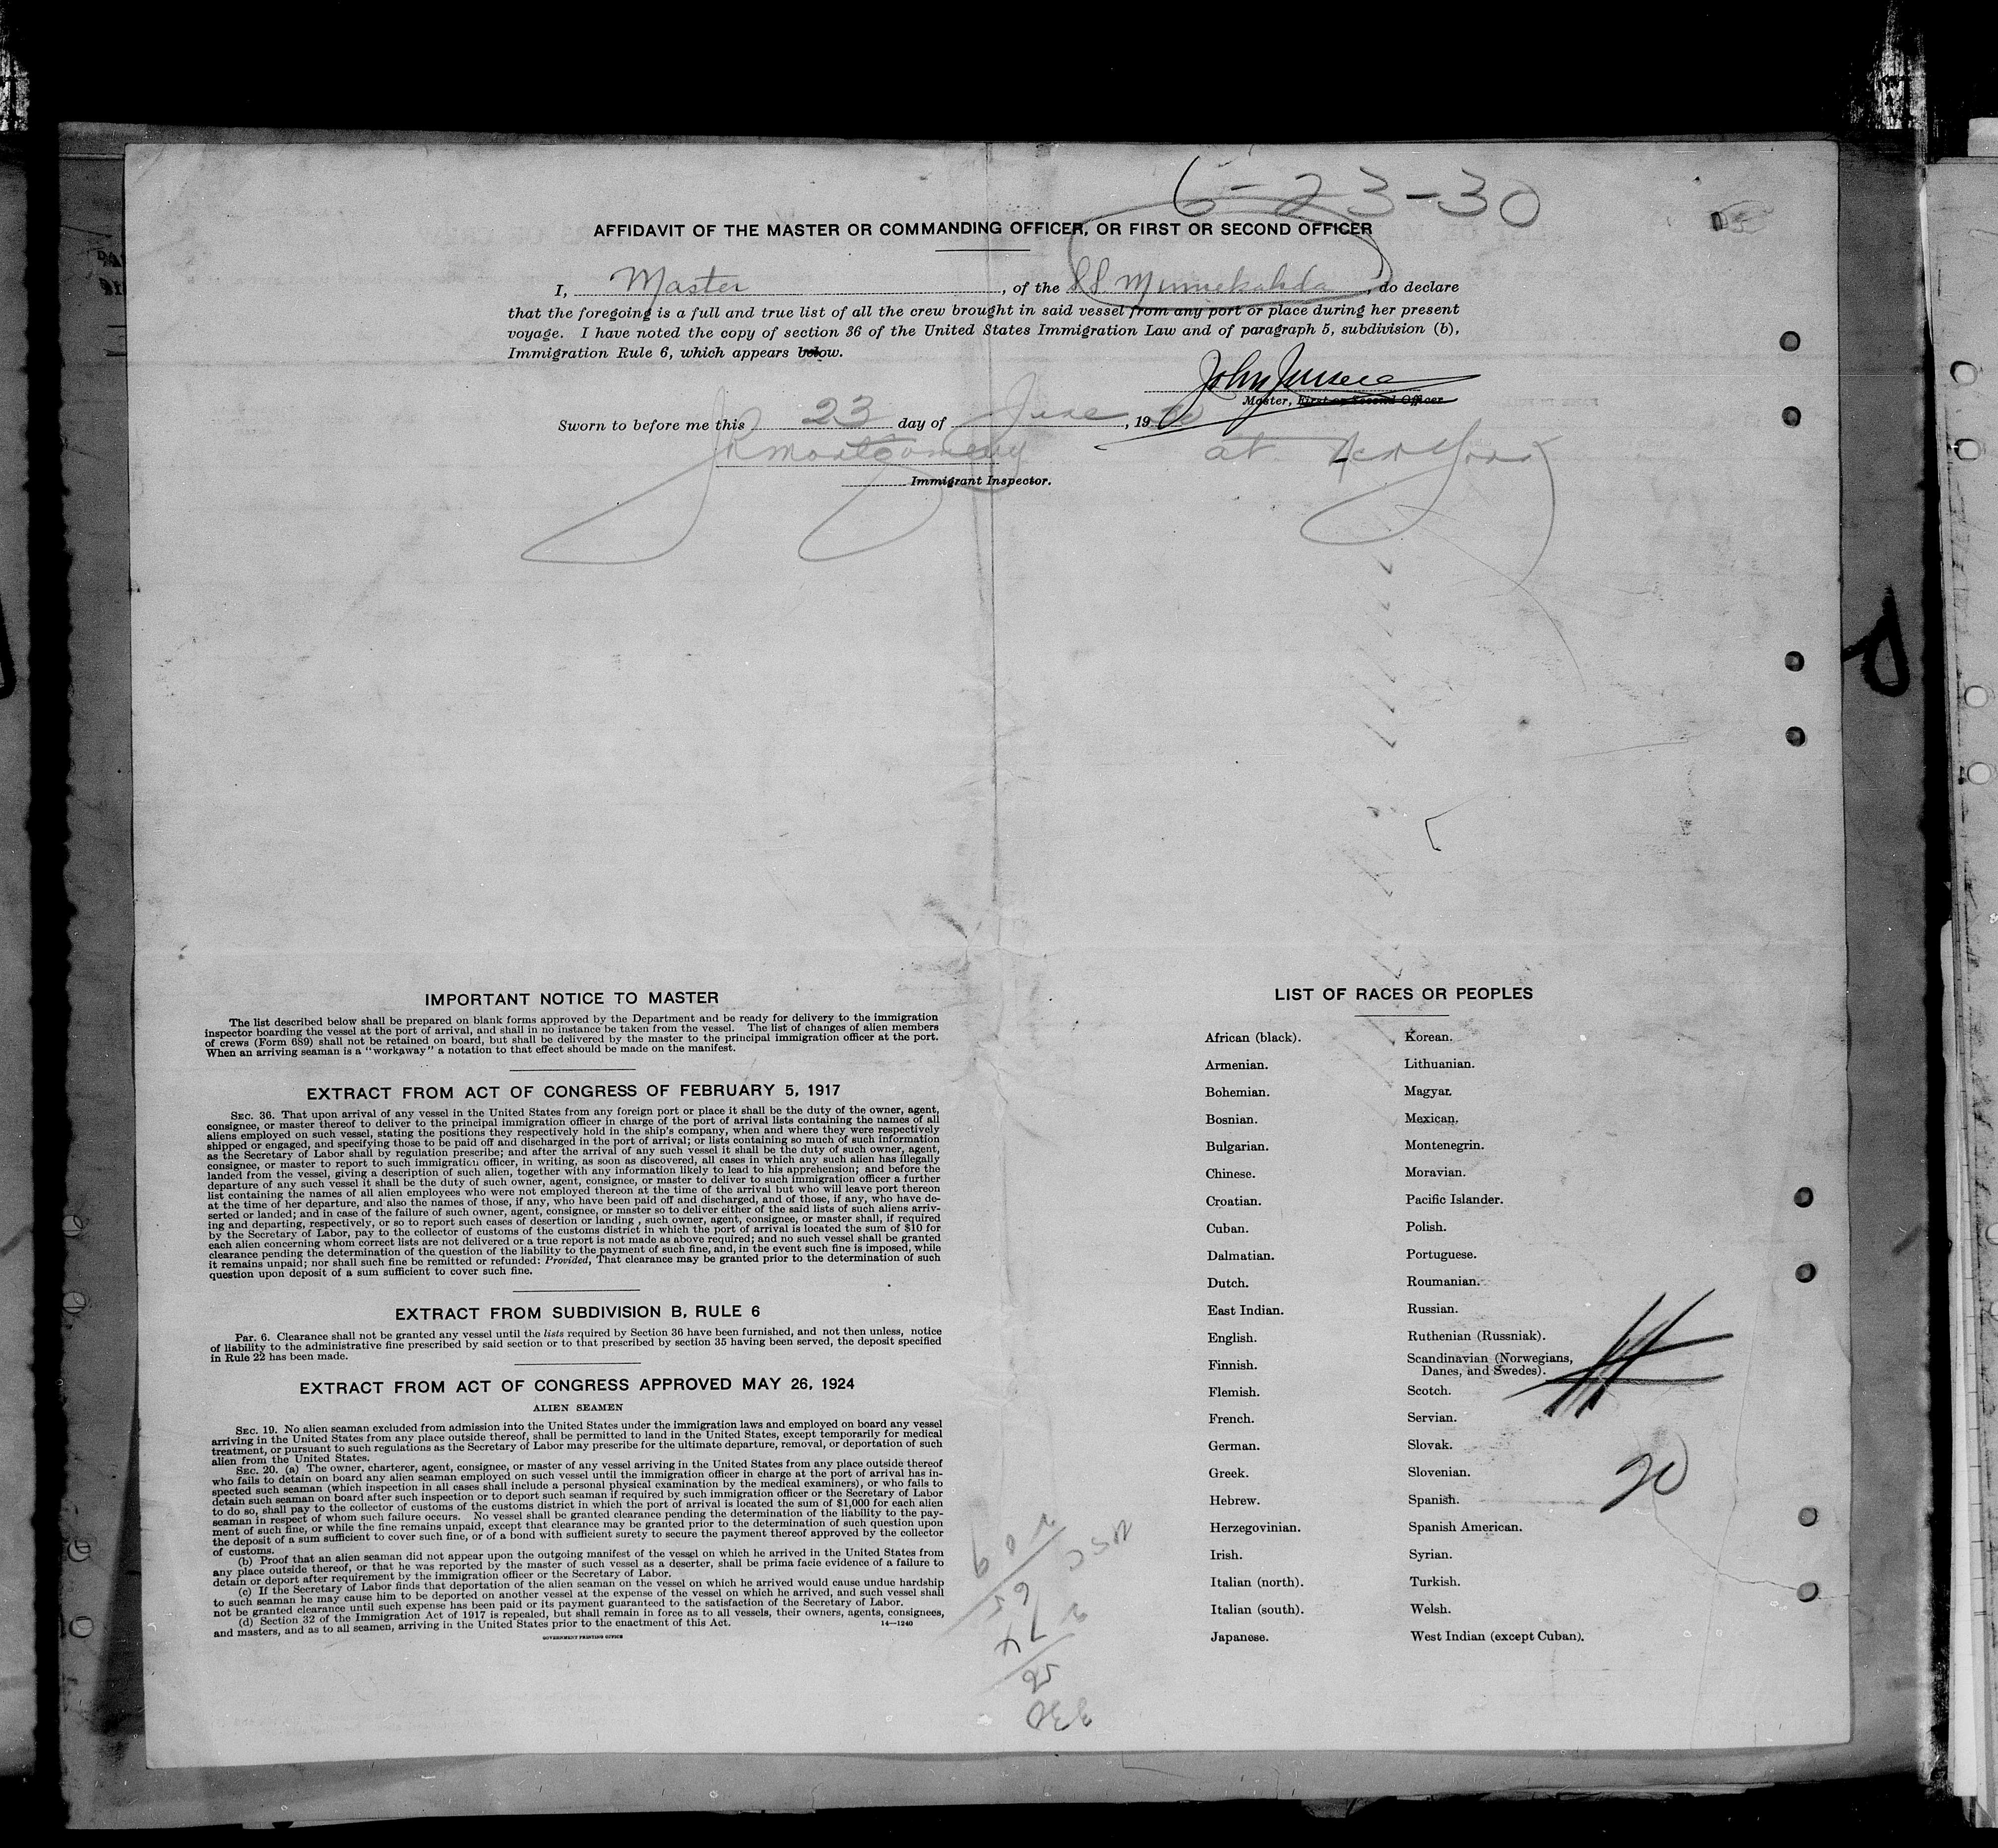 6-23-30
AFFIDAVIT OF THE MASTER OR COMMANDING OFFICER, OR FIRST OR SECOND OFFICER
I, Master, of the SS Minnekahda, do declare
that the foregoing is a full and true list of all the crew brought in said vessel from any port or place during her present
voyage. I have noted the copy of section 36 of the United States Immigration Law and of paragraph 5, subdivision (b),
Immigration Rule 6, which appears below.
John Jensen
Master, First or Second Officer
Sworn to before me this 23 day of June, 1930
JRMontgomery at New York
Immigrant Inspector.
IMPORTANT NOTICE TO MASTER
The list described below shall be prepared on blank forms approved by the Department and be ready for delivery to the immigration
inspector boarding the vessel at the port of arrival, and shall in no instance be taken from the vessel. The list of changes of alien members
of crews (Form 689) shall not be retained on board, but shall be delivered by the master to the principal immigration officer at the port.
When an arriving seaman is a "workaway" a notation to that effect should be made on the manifest.
EXTRACT FROM ACT OF CONGRESS OF FEBRUARY 5, 1917
SEC. 36. That upon arrival of any vessel in the United States from any foreign port or place it shall be the duty of the owner, agent,
consignee, or master thereof to deliver to the principal immigration officer in charge of the port of arrival lists containing the names of all
aliens employed on such vessel, stating the positions they respectively hold in the ship's company, when and where they were respectively
shipped or engaged, and specifying those to be paid off and discharged in the port of arrival; or lists containing so much of such information
as the Secretary of Labor shall by regulation prescribe; and after the arrival of any such vessel it shall be the duty of such owner, agent,
consignee, or master to report to such immigration officer, in writing, as soon as discovered, all cases in which any such alien has illegally
landed from the vessel, giving a description of such alien, together with any information likely to lead to his apprehension; and before the
departure of any such vessel it shall be the duty of such owner, agent, consignee, or master to deliver to such immigration officer a further
list containing the names of all alien employees who were not employed thereon at the time of the arrival but who will leave port thereon
at the time of her departure, and also the names of those, if any, who have been paid off and discharged, and of those, if any, who have de-
serted or landed; and in case of the failure of such owner, agent, consignee, or master so to deliver either of the said lists of such aliens arriv-
ing and departing, respectively, or so to report such cases of desertion or landing , such owner, agent, consignee, or master shall, if required
by the Secretary of Labor, pay to the collector of customs of the customs district in which the port of arrival is located the sum of $10 for
each alien concerning whom correct lists are not delivered or a true report is not made as above required; and no such vessel shall be granted
clearance pending the determination of the question of the liability to the payment of such fine, and, in the event such fine is imposed, while
it remains unpaid; nor shall such fine be remitted or refunded: Provided, That clearance may be granted prior to the determination of such
question upon deposit of a sum sufficient to cover such fine.
EXTRACT FROM SUBDIVISION B, RULE 6
Par. 6. Clearance shall not be granted any vessel until the lists required by Section 36 have been furnished, and not then unless, notice
of liability to the administrative fine prescribed by said section or to that prescribed by section 35 having been served, the deposit specified
in Rule 22 has been made.
EXTRACT FROM ACT OF CONGRESS APPROVED MAY 26, 1924
ALIEN SEAMEN
SEC. 19. No alien seaman excluded from admission into the United States under the immigration laws and employed on board any vessel
arriving in the United States from any place outside thereof, shall be permitted to land in the United States, except temporarily for medical
treatment, or pursuant to such regulations as the Secretary of Labor may prescribe for the ultimate departure, removal, or deportation of such
alien from the United States.
SEC. 20. (a) The owner, charterer, agent, consignee, or master of any vessel arriving in the United States from any place outside thereof
who fails to detain on board any alien seaman employed on such vessel until the immigration officer in charge at the port of arrival has in-
spected such seaman (which inspection in all cases shall include a personal physical examination by the medical examiners), or who fails to
detain such seaman on board after such inspection or to deport such seaman if required by such immigration officer or the Secretary of Labor
to do so, shall pay to the collector of customs of the customs district in which the port of arrival is located the sum of $1,000 for each alien
seaman in respect of whom such failure occurs. No vessel shall be granted clearance pending the determination of the liability to the pay-
ment of such fine, or while the fine remains unpaid, except that clearance may be granted prior to the determination of such question upon
the deposit of a sum sufficient to cover such fine, or of a bond with sufficient surety to secure the payment thereof approved by the collector
of customs.
(b) Proof that an alien seaman did not appear upon the outgoing manifest of the vessel on which he arrived in the United States from
any place outside thereof, or that he was reported by the master of such vessel as a deserter, shall be prima facie evidence of a failure to
detain or deport after requirement by the immigration officer or the Secretary of Labor.
(c) If the Secretary of Labor finds that deportation of the alien seaman on the vessel on which he arrived would cause undue hardship
to such seaman he may cause him to be deported on another vessel at the expense of the vessel on which he arrived, and such vessel shall
not be granted clearance until such expense has been paid or its payment guaranteed to the satisfaction of the Secretary of Labor.
(d) Section 32 of the Immigration Act of 1917 is repealed, but shall remain in force as to all vessels, their owners, agents, consignees,
and masters, and as to all seamen, arriving in the United States prior to the enactment of this Act. 14—1240
GOVERNMENT PRINTING OFFICE
LIST OF RACES OR PEOPLES
African (black). Korean.
Armenian. Lithuanian.
Bohemian. Magyar.
Bosnian. Mexican.
Bulgarian. Montenegrin.
Chinese. Moravian.
Croatian. Pacific Islander.
Cuban. Polish.
Dalmatian. Portuguese.
Dutch. Roumanian.
East Indian. Russian.
English. Ruthenian (Russniak).
Finnish. Scandinavian (Norwegians,
Danes, and Swedes).
Flemish. Scotch.
French. Servian.
German. Slovak.
Greek. Slovenian.
Hebrew. Spanish.
Herzegovinian. Spanish American.
Irish. Syrian.
Italian (north). Turkish.
Italian (south). Welsh.
Japanese. West Indian (except Cuban).
20
330